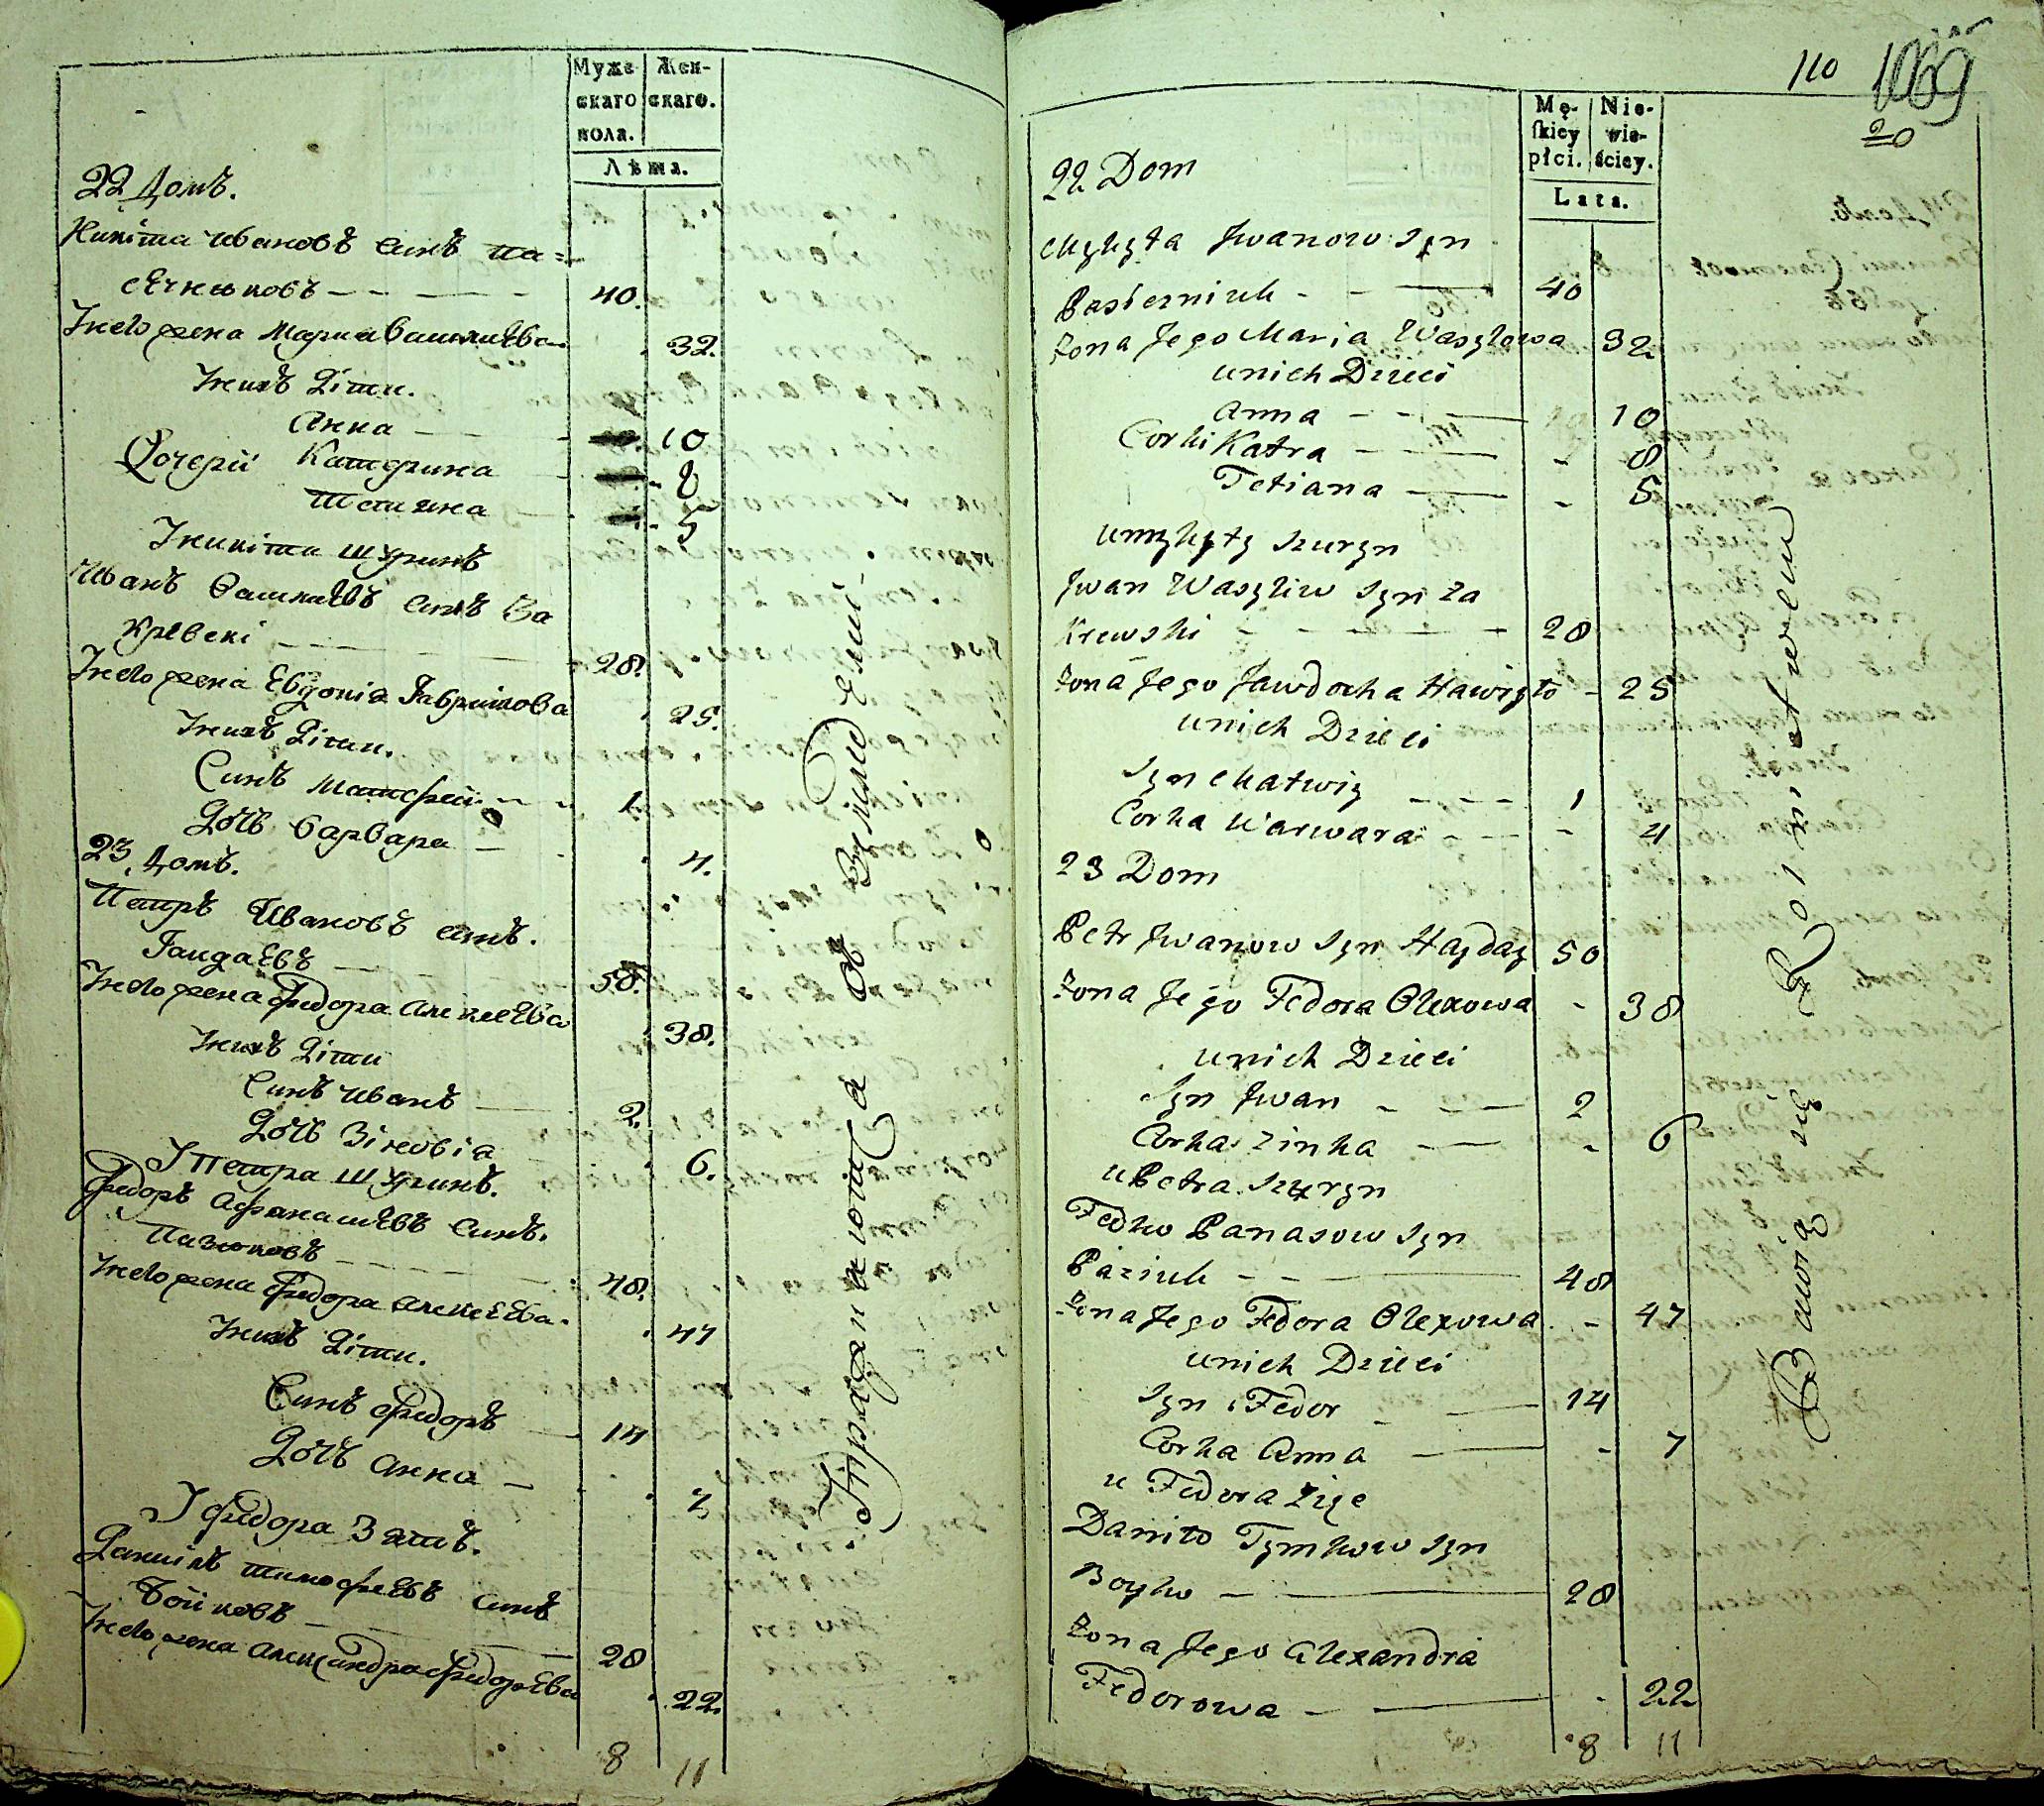 Муже- Жен-
скаго скаго.
пола.
Лѣта.
22 Домъ.
Никіта Ивановъ синъ Па=
сѣчнюковъ 40.
У него жена Мария Василиѣва 32.
У нихъ Діти.
Анна 10
Дочерїи Катерина 8
Тетиана 5
У Никіти шуринъ
Иванъ Василиѣвъ синъ За
кревскі 28.
У него жена Евдокіа Гаврилова 25.
У нихъ Діти.
Синъ Матфей 1.
Дочь Варвара 4.
23 Домъ.
Петръ Ивановъ синъ.
Гайдаѣвъ 50.
У него жена Федора Алексеѣва 38.
У нихъ Діти
Синъ Иванъ 2.
Дочь Зіновіа 6.
У Петра шуринъ.
Федоръ Афанасиѣвъ синъ.
Пазюковъ 48.
У него жена Федора Алексеѣва. 47
У нихъ Діти.
Синъ Федоръ 14
Дочь Анна 7
У Федора Зять.
Данилъ Тимофеѣвъ синъ
Бойковъ 28
У него жена Александра Федорѣва 22.
8 11
110 1069
20
Mę- Nie-
skiey wie-
płci. ściey.
Lata.
22 Dom
Mykyta Jwanow syn
Pasiecniuk 40
żona Jego Maria Wasylowa 32
unich Dzieci
Anna 10
Corki Katra 8
Tetiana 5
umykyty szuryn
Jwan Wasyliw syn Za
Krewski 28
żona Jego Jawdocha Hawryło 25
unich Dzieci
Syn Matwiy 1
Corka Warwara 4
23 Dom
Petr Jwanow syn Hayday 50
żona Jego Fedora Olexowa 38
unich Dzieci
Syn Jwan 2
Corka Zinka 6
u Petra szuryn
Fedko Panasow syn
Paziuk 48
żona Jego Fedora Olexowa 47
unich Dzieci
Syn Fedor 14
Corka Anna 7
u Fedora Zięc
Daniło Tymkow syn
Boyko 28
żona Jego Alexandra
Fedorowa 22
8 11